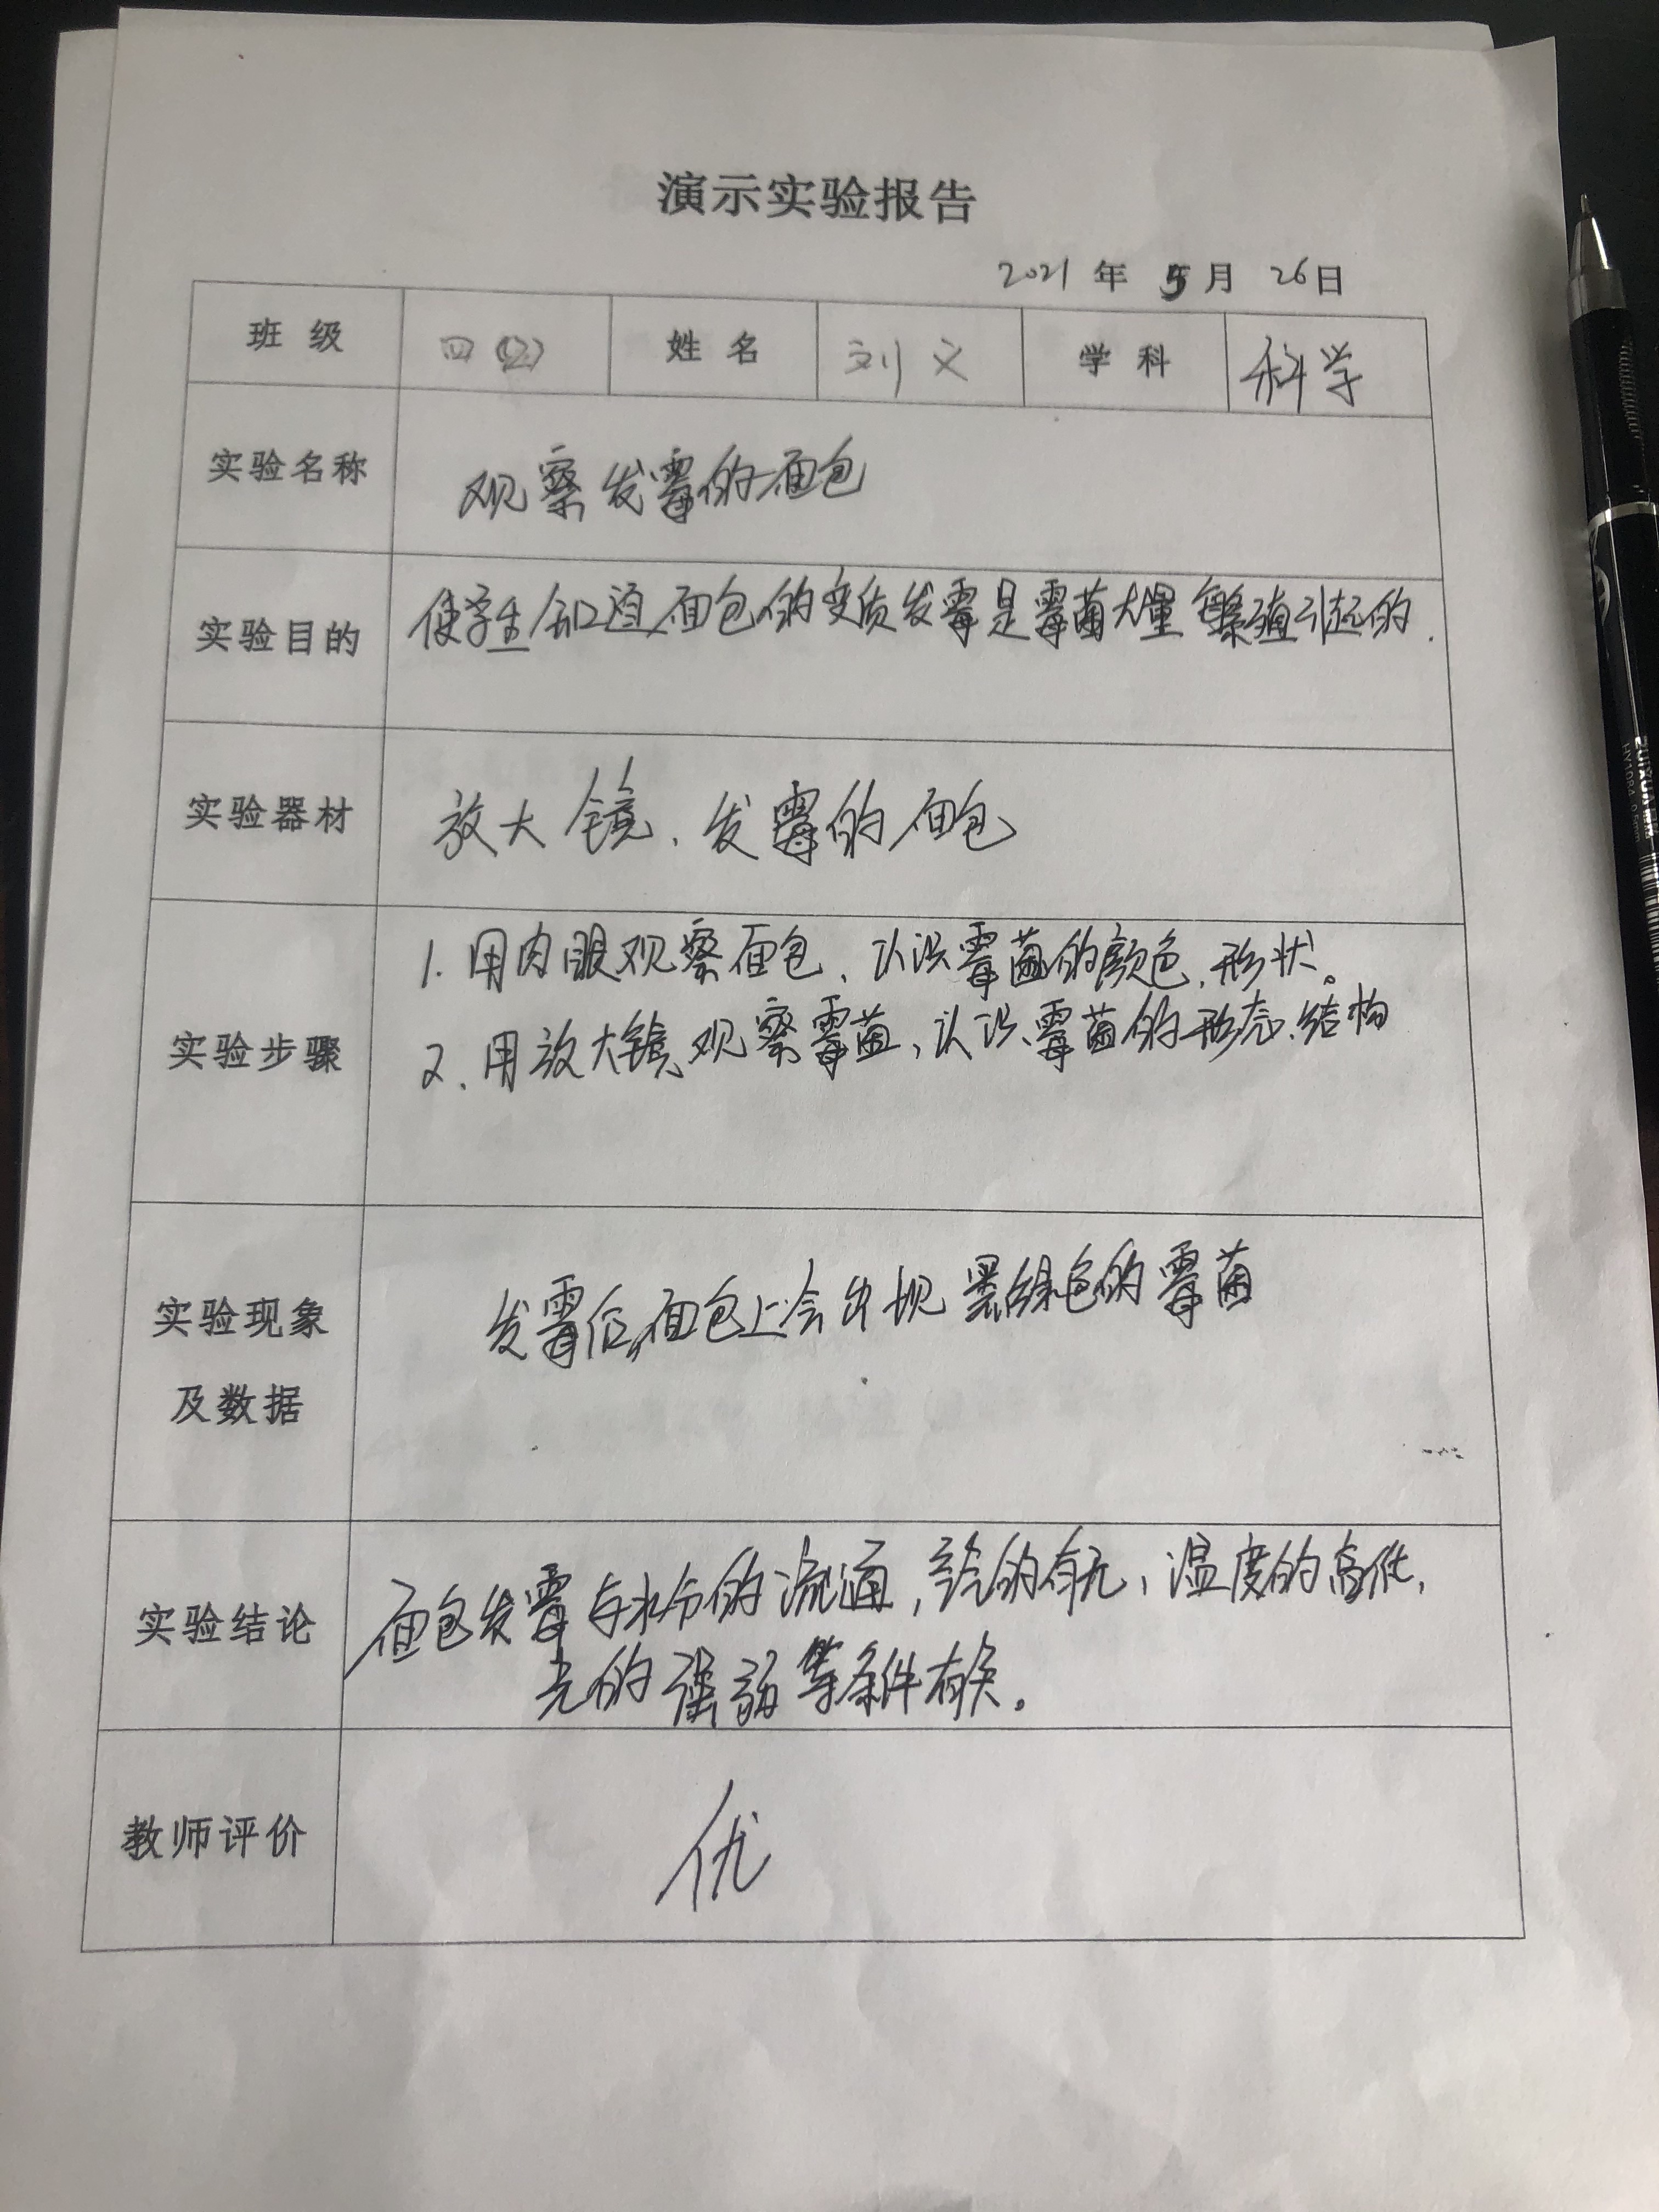 演示实验报告
2021年5月26日
班级 四(2) 姓名 刘义 学科 科学
实验名称 观察发霉的面包
实验目的 使学生知道面包的变质发霉是霉菌大量繁殖引起的.
实验器材 放大镜、发霉的面包
1.用肉眼观察面包、认识霉菌的颜色、形状。
实验步骤 2、用放大镜观察霉菌、认识霉菌的形态、结构
实验现象 发霉后,面包上会出现黑绿色的霉菌
及数据
实验结论 面包发霉与水分的流通,空气的有无、温度的高低,
光的强弱等条件有关。
教师评价 优